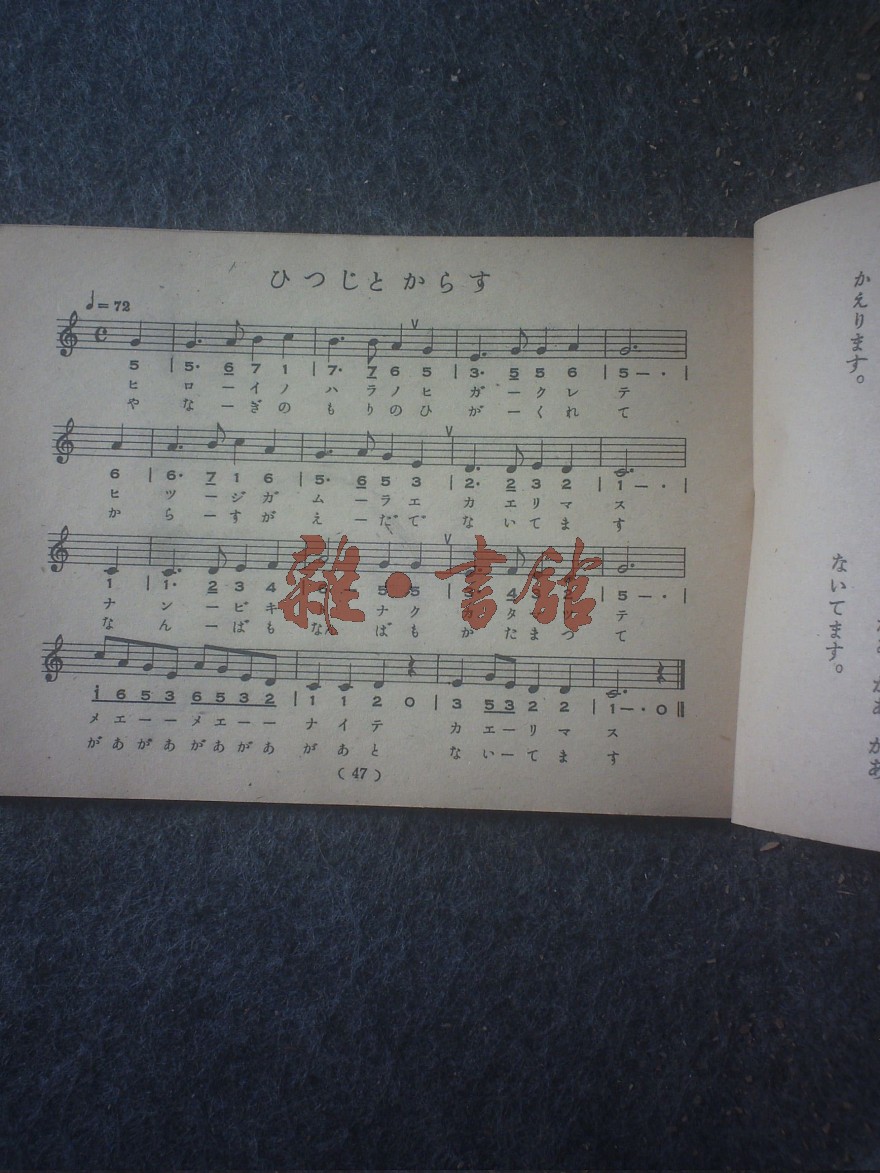 ひつじとからす
♩= 72
5 | 5· 6 7 1 | 7· 7 6 5 | 3· 5 5 6 | 5 — · |
ヒ ロ ー イ ノ ハ ラ ノ ヒ ガ ー ク レ テ
や な ー ぎ の も り の ひ が ー く れ て
6 | 6· 7 1 6 | 5· 6 5 3 | 2· 2 3 2 | 1 — · |
ヒ ツ ー ジ ガ ム ー ラ エ カ エ リ マ ス
か ら ー す が え ー だ で な い て ま す
1 | 1· 2 3 4 5 5 4 3 2 | 5 — · |
ナ ン ー ビ キ ナ ク タ テ
な ん ー ば も な ん ば も か た ま つ て
i 6 5 3 6 5 3 2 | 1 1 2 0 | 3 5 3 2 2 | 1 — · 0 ‖
メ エ ー ー メ エ ー ー ナ イ テ カ エ ー リ マ ス
が あ が あ が あ が あ が あ と な い ー て ま す
( 47 )
かえります。
ないてます。
雜·書館